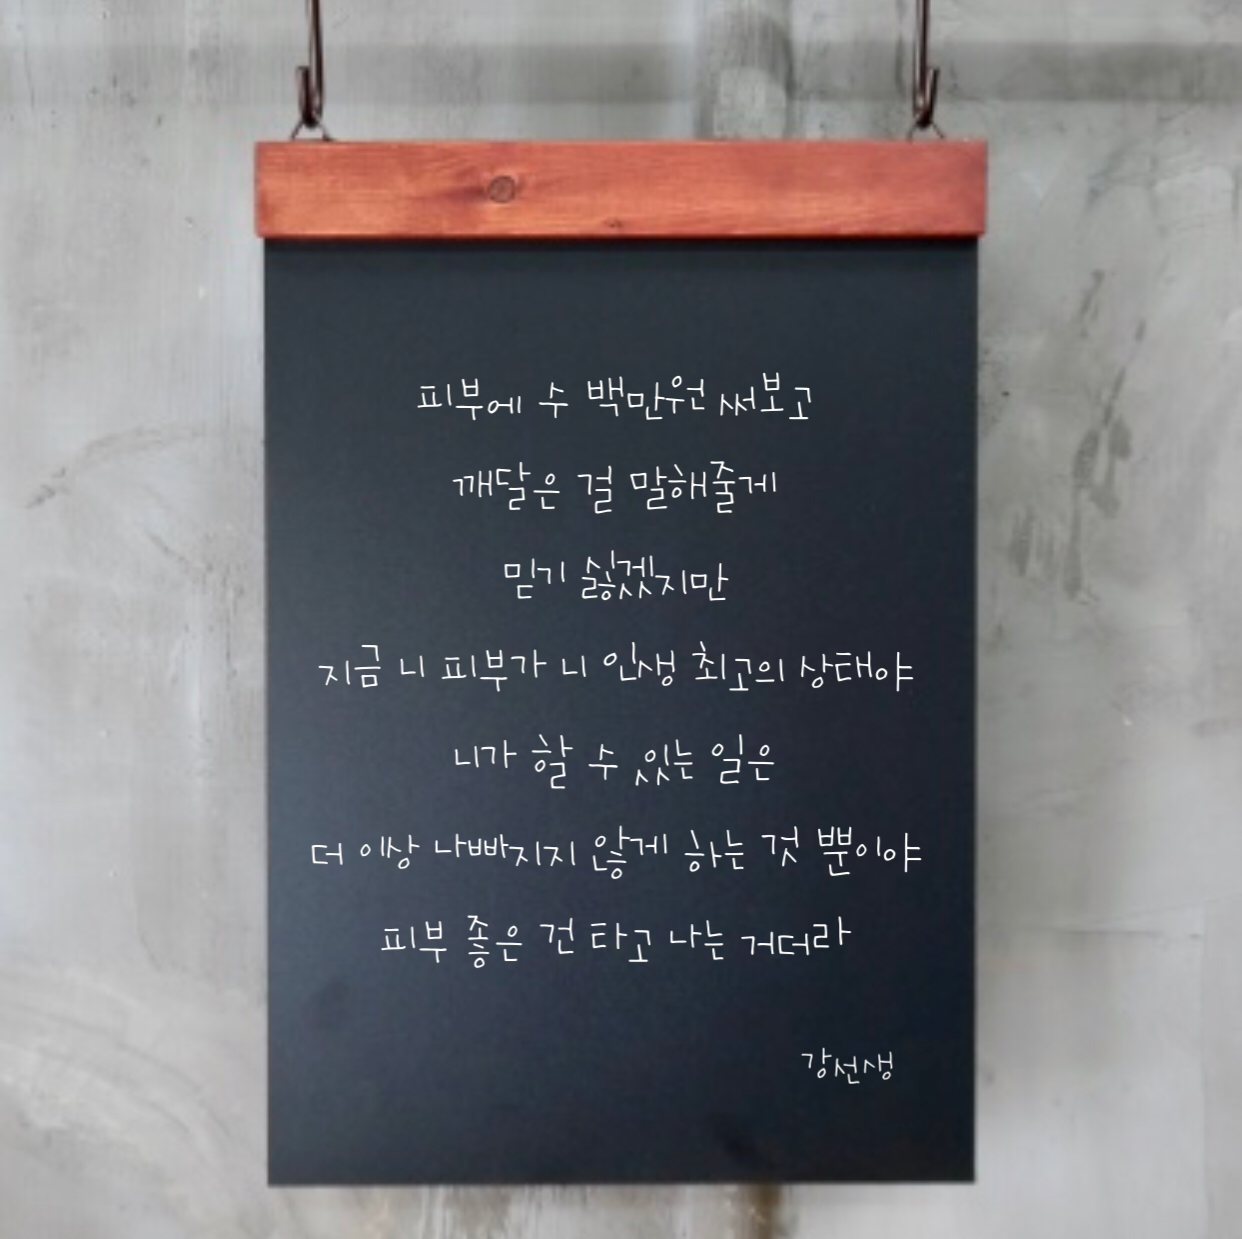 피부에 수 백만원 써보고
깨달은 걸 말해줄게
믿기 싫겠지만
지금 니 피부가 니 인생 최고의 상태야
니가 할 수 있는 일은
더 이상 나빠지지 않게 하는 것 뿐이야
피부 좋은 건 타고 나는 거더라
강선생